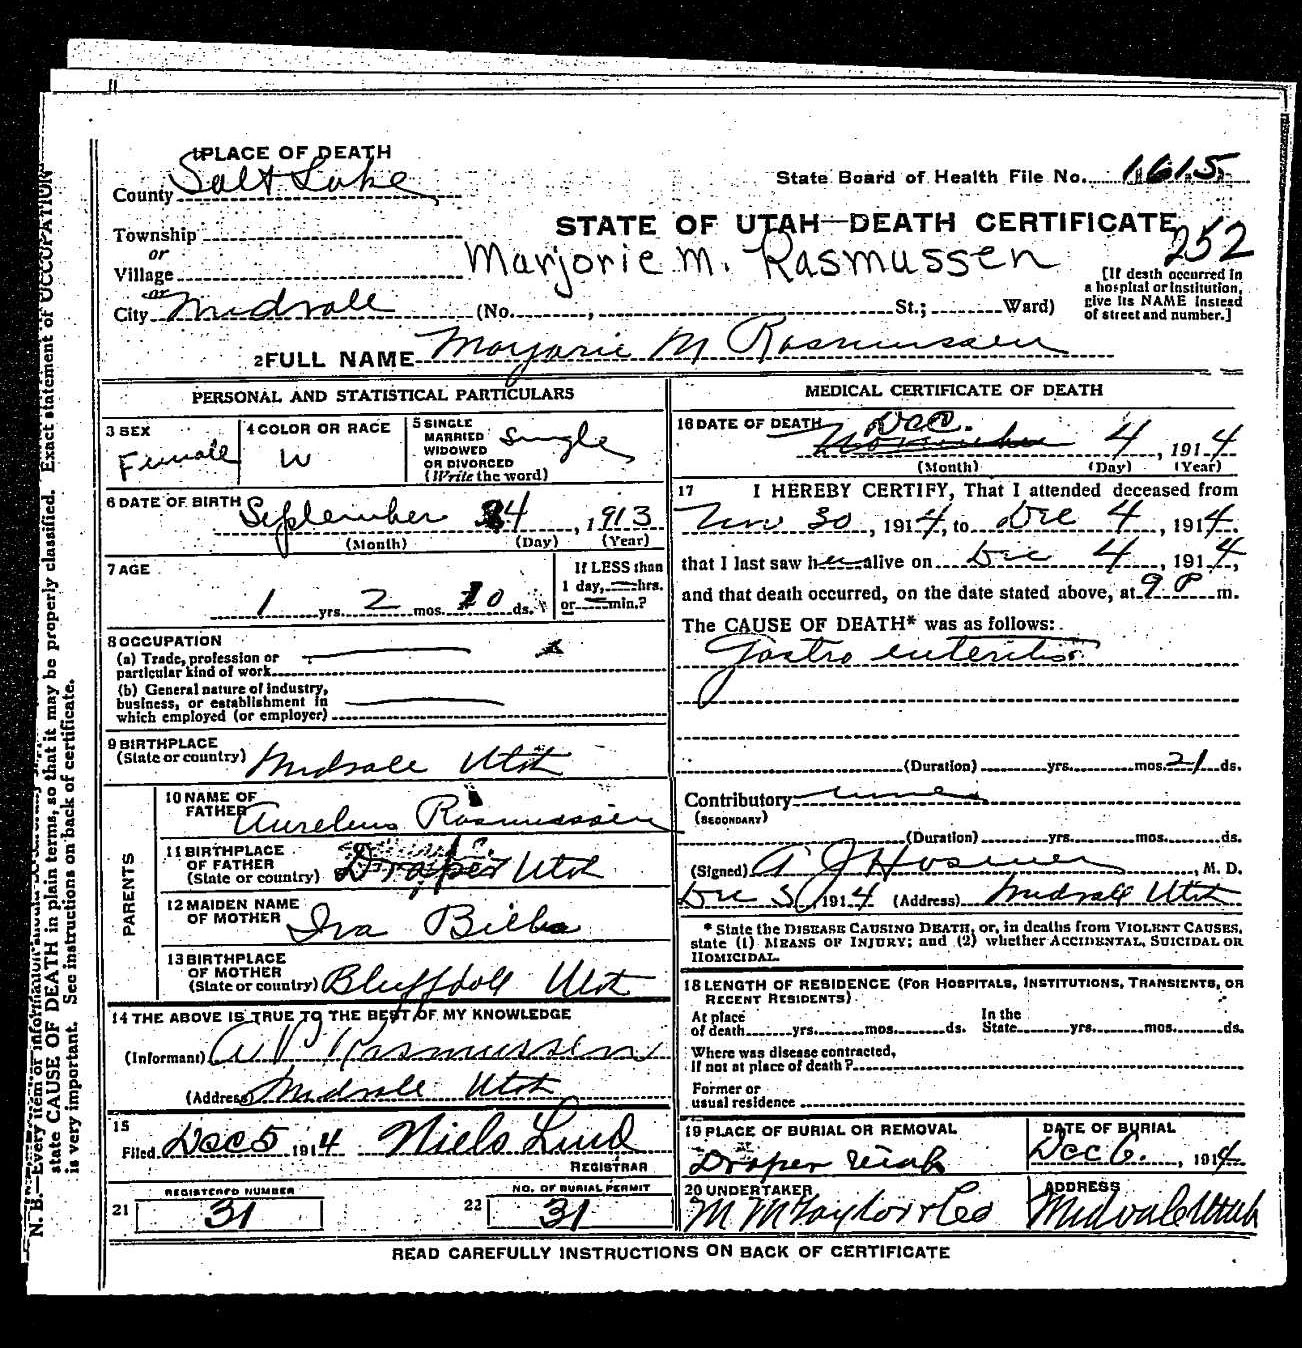 1 PLACE OF DEATH
County Salt Lake
State Board of Health File No. 1615
STATE OF UTAH—DEATH CERTIFICATE
252
Township
or
Village
Marjorie M. Rasmussen
or
City Midvale (No. , St.; Ward)
[If death occurred in a hospital or institution, give its NAME instead of street and number.]
2 FULL NAME Marjorie M Rasmussen
PERSONAL AND STATISTICAL PARTICULARS
3 SEX
Female
4 COLOR OR RACE
W
5 SINGLE
MARRIED
WIDOWED
OR DIVORCED
(Write the word)
Single
6 DATE OF BIRTH
September 24, 1913
(Month) (Day) (Year)
7 AGE
1 yrs. 2 mos. 10 ds.
If LESS than
1 day, hrs.
or min.?
8 OCCUPATION
(a) Trade, profession or
particular kind of work
(b) General nature of industry,
business, or establishment in
which employed (or employer)
9 BIRTHPLACE
(State or country) Midvale Utah
PARENTS
10 NAME OF
FATHER Aurelius Rasmussen
11 BIRTHPLACE
OF FATHER
(State or country) Draper Utah
12 MAIDEN NAME
OF MOTHER Iva
13 BIRTHPLACE
OF MOTHER
(State or country) Bluffdale Utah
14 THE ABOVE IS TRUE TO THE BEST OF MY KNOWLEDGE
(Informant) A P Rasmussen
(Address) Midvale Utah
15
Filed Dec 5 1914 Niels Lind
REGISTRAR
REGISTERED NUMBER
21 31
NO. OF BURIAL PERMIT
22 31
MEDICAL CERTIFICATE OF DEATH
16 DATE OF DEATH
Dec.
November 4, 1914
(Month) (Day) (Year)
17 I HEREBY CERTIFY, That I attended deceased from
Nov 30, 1914, to Dec 4, 1914.
that I last saw her alive on Dec 4, 1914,
and that death occurred, on the date stated above, at 9 P m.
The CAUSE OF DEATH* was as follows:
Gastro enteritis
(Duration) yrs. mos. 21 ds.
Contributory none
(SECONDARY)
(Duration) yrs. mos. ds.
(Signed) A J Hosmer, M. D.
Dec 5, 1914 (Address) Midvale Utah
* State the DISEASE CAUSING DEATH, or, in deaths from VIOLENT CAUSES,
state (1) MEANS OF INJURY; and (2) whether ACCIDENTAL, SUICIDAL OR
HOMICIDAL.
18 LENGTH OF RESIDENCE (FOR HOSPITALS, INSTITUTIONS, TRANSIENTS, OR
RECENT RESIDENTS).
At place
of death yrs. mos. ds.
In the
State yrs. mos. ds.
Where was disease contracted,
if not at place of death?
Former or
usual residence
19 PLACE OF BURIAL OR REMOVAL
Draper Utah
DATE OF BURIAL
Dec 6, 1914
20 UNDERTAKER
M M Taylor & Co
ADDRESS
Midvale Utah
READ CAREFULLY INSTRUCTIONS ON BACK OF CERTIFICATE
N. B.—Every item of information
state CAUSE OF DEATH in plain terms, so that it may be properly classified. Exact statement of OCCUPATION
is very important. See instructions on back of certificate.